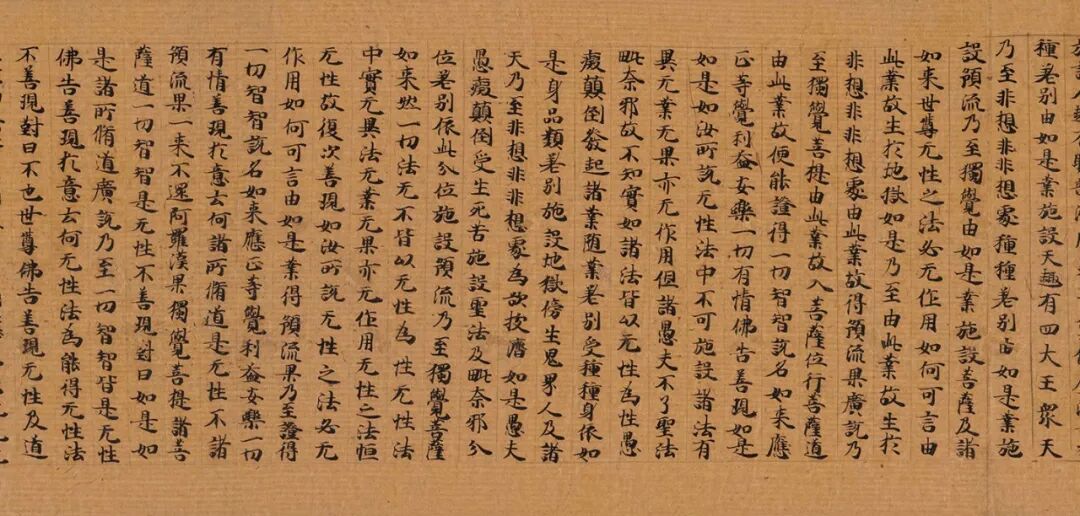 種差別由如是業施設天趣有四大王衆天
乃至非想非非想處種種差別由如是業施
設預流乃至獨覺由如是業施設菩薩及諸
如來世尊无性之法必无作用如何可言由
此業故生於地獄如是乃至由此業故生於
非想非非想處由此業故得預流果廣說乃
至獨覺菩提由此業故入菩薩位行菩薩道
由此業故便能證得一切智智說名如來應
正等覺利益安樂一切有情佛告善現如是
如是如汝所說无性法中不可施設諸法有
異无業无果亦无作用但諸愚夫不了聖法
毗奈邪故不知實如諸法皆以无性為性愚
癡顛倒發起諸業隨業差別受種種身依如
是身品類差別施設地獄傍生鬼界人及諸
天乃至非想非非想處為欲拔濟如是愚夫
愚癡顛倒受生死苦施設聖法及毗奈邪分
位差別依此分位施設預流乃至獨覺菩薩
如來然一切法无不皆以无性為性无性法
中實无異法无業无果亦无作用无性之法恒
无性故復次善現如汝所說无性之法必无
作用如何可言由如是業得預流果乃至證得
一切智智說名如來應正等覺利益安樂一切
有情善現於意云何諸所脩道是无性不諸
預流果一來不還阿羅漢果獨覺菩提諸菩
薩道一切智智是无性不善現對曰如是如
是諸所脩道廣說乃至一切智智皆是无性
佛告善現於意云何无性法為能得无性法
不善現對曰不也世尊佛告善現无性及道